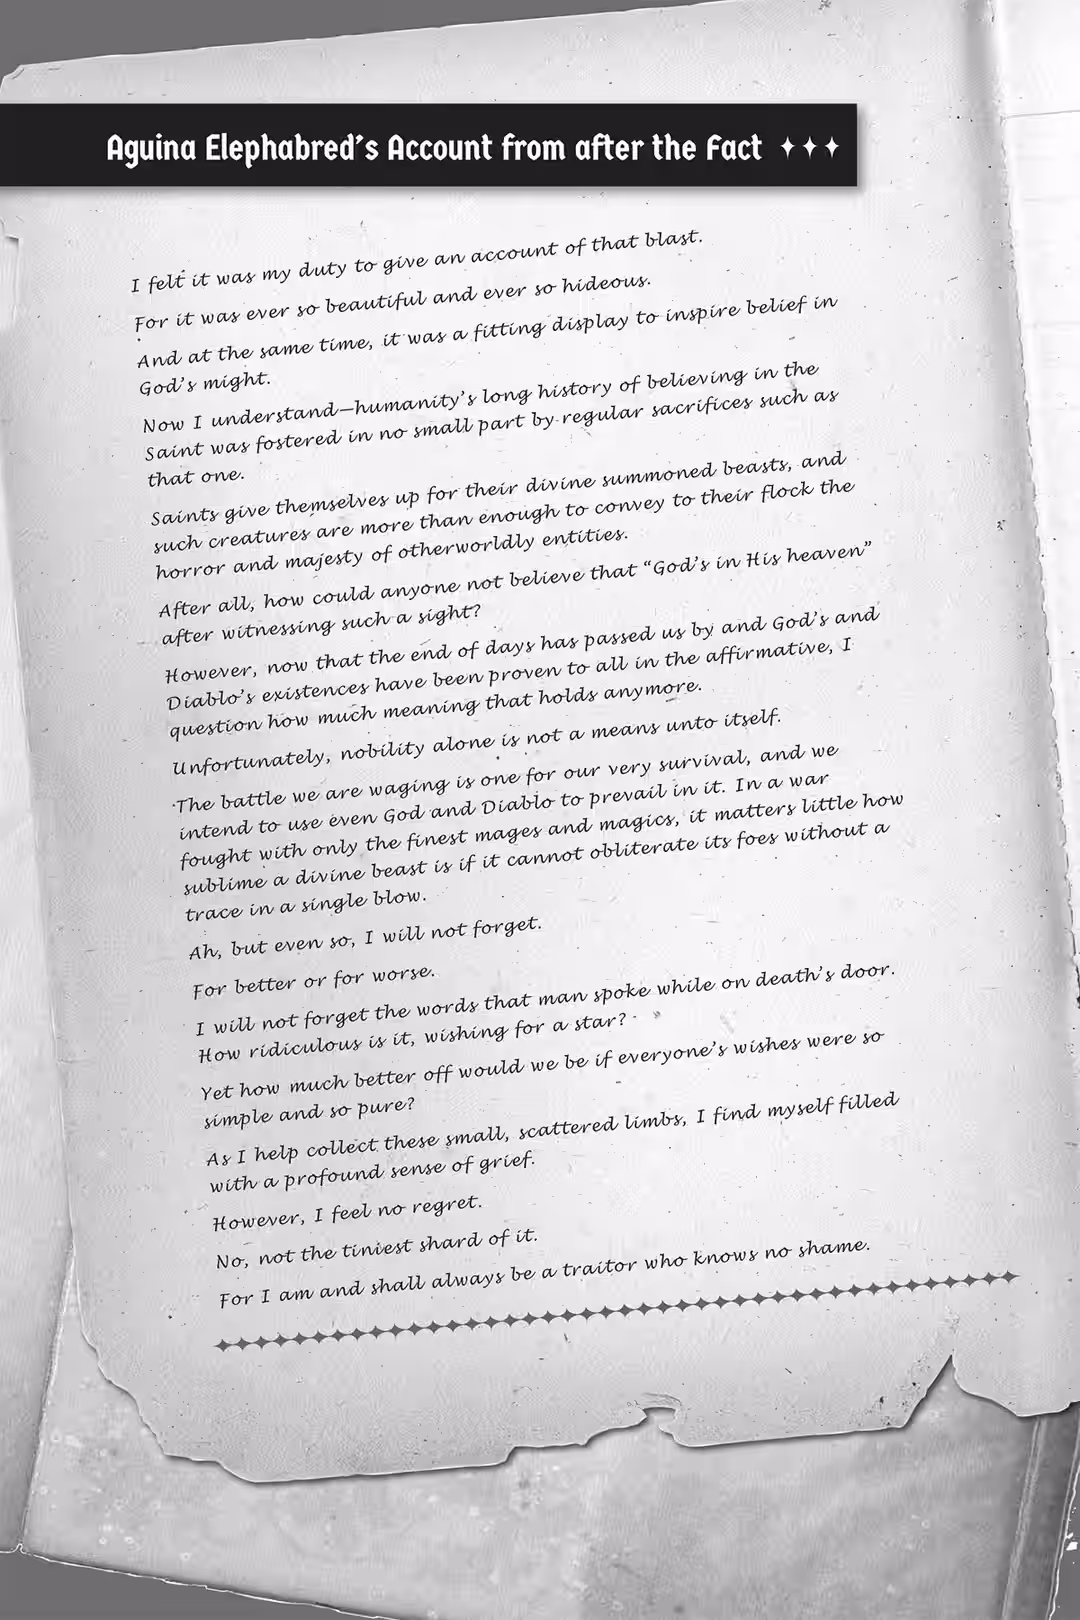 Aguina Elephabred's Account from after the Fact ✦✦✦
I felt it was my duty to give an account of that blast.
For it was ever so beautiful and ever so hideous.
And at the same time, it was a fitting display to inspire belief in
God's might.
Now I understand—humanity's long history of believing in the
Saint was fostered in no small part by regular sacrifices such as
that one.
Saints give themselves up for their divine summoned beasts, and
such creatures are more than enough to convey to their flock the
horror and majesty of otherworldly entities.
After all, how could anyone not believe that “God's in His heaven”
after witnessing such a sight?
However, now that the end of days has passed us by and God's and
Diablo's existences have been proven to all in the affirmative, I
question how much meaning that holds anymore.
Unfortunately, nobility alone is not a means unto itself.
The battle we are waging is one for our very survival, and we
intend to use even God and Diablo to prevail in it. In a war
fought with only the finest mages and magics, it matters little how
sublime a divine beast is if it cannot obliterate its foes without a
trace in a single blow.
Ah, but even so, I will not forget.
For better or for worse.
I will not forget the words that man spoke while on death's door.
How ridiculous is it, wishing for a star?
Yet how much better off would we be if everyone's wishes were so
simple and so pure?
As I help collect these small, scattered limbs, I find myself filled
with a profound sense of grief.
However, I feel no regret.
No, not the tiniest shard of it.
For I am and shall always be a traitor who knows no shame.